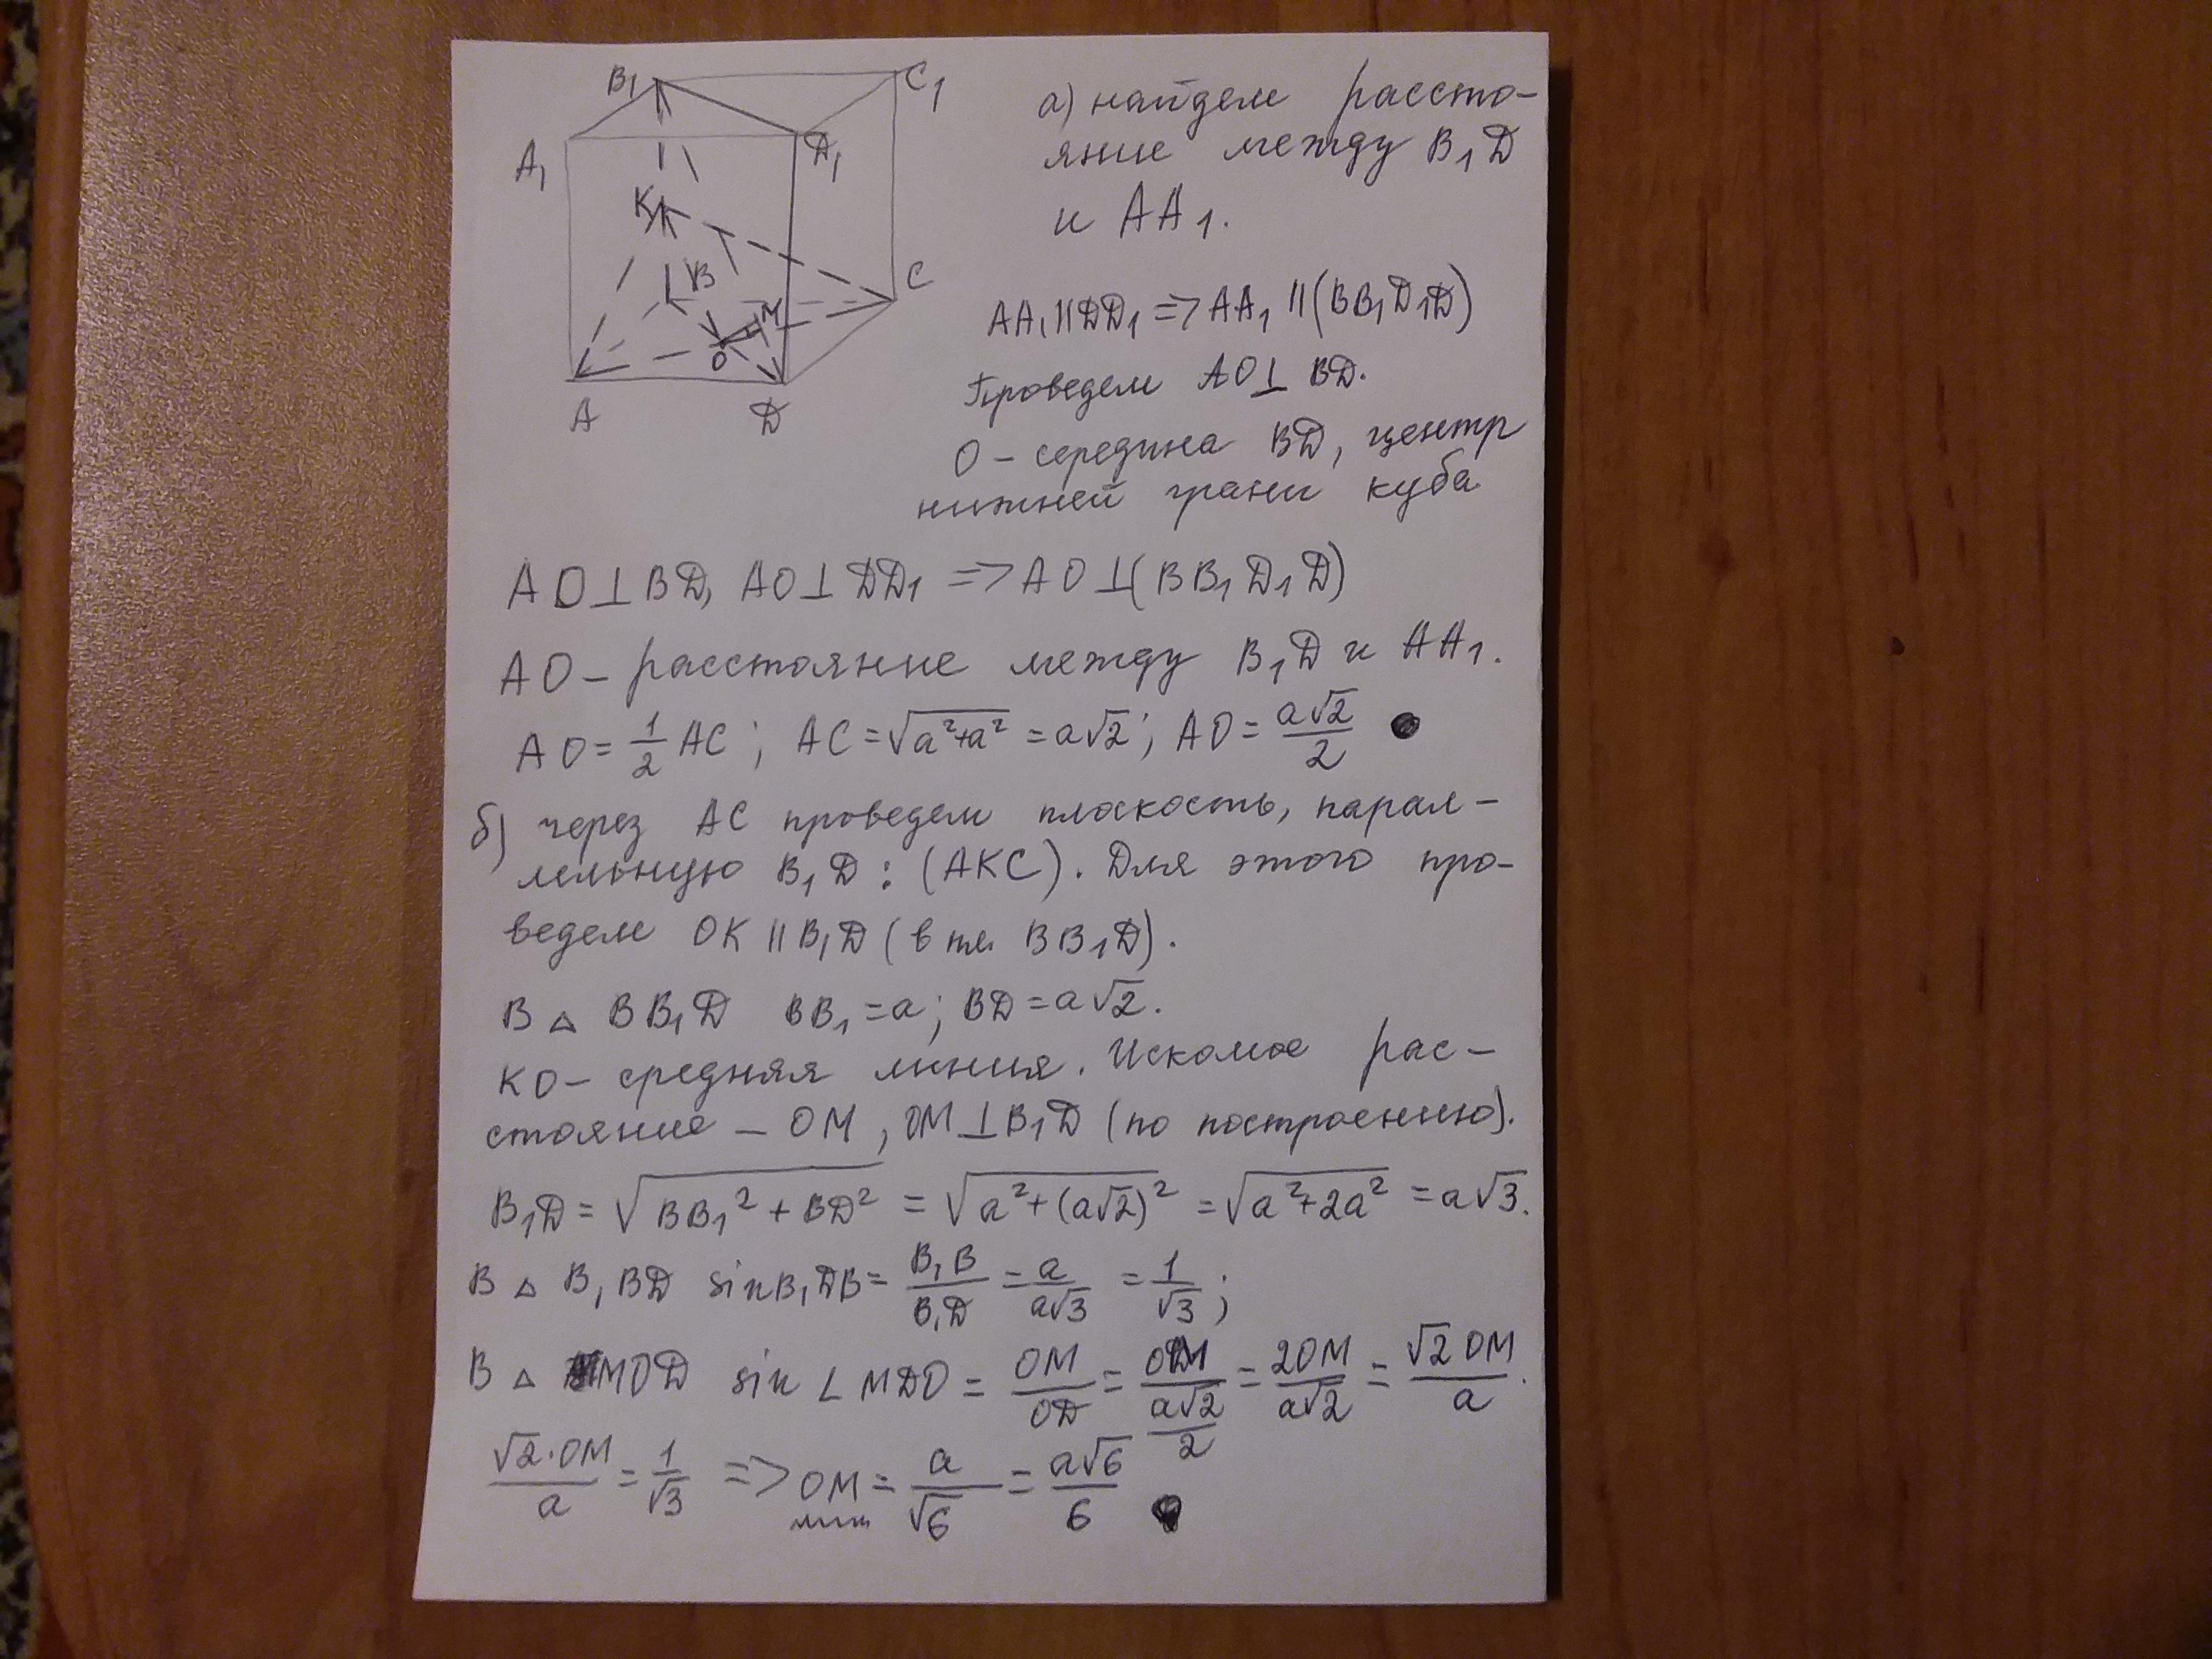 B₁
C₁
A₁
D₁
K
B
C
M
O
A
D
а) найдем рассто-
яние между B₁D
и AA₁.
AA₁ || DD₁ => AA₁ || (BB₁D₁D)
Проведем AO ⊥ BD.
O – середина BD, центр
нижней грани куба
AO ⊥ BD, AO ⊥ DD₁ => AO ⊥ (BB₁D₁D)
AO – расстояние между B₁D и AA₁.
AO = 1/2 AC ; AC = √(a²+a²) = a√2 ; AO = a√2/2
б) через AC проведем плоскость, парал-
лельную B₁D : (AKC). Для этого про-
ведем OK || B₁D (в пл. BB₁D).
В △ BB₁D BB₁ = a ; BD = a√2.
KO – средняя линия. Искомое рас-
стояние – OM, OM ⊥ B₁D (по построению).
B₁D = √(BB₁² + BD²) = √(a² + (a√2)²) = √(a² + 2a²) = a√3.
В △ B₁BD sin B₁DB = B₁B/B₁D = a/a√3 = 1/√3 ;
В △ MOD sin ∠ MDO = OM/OD = OM/(a√2/2) = 2OM/a√2 = √2 OM/a.
√2·OM/a = 1/√3 => OM = a/√6 = a√6/6